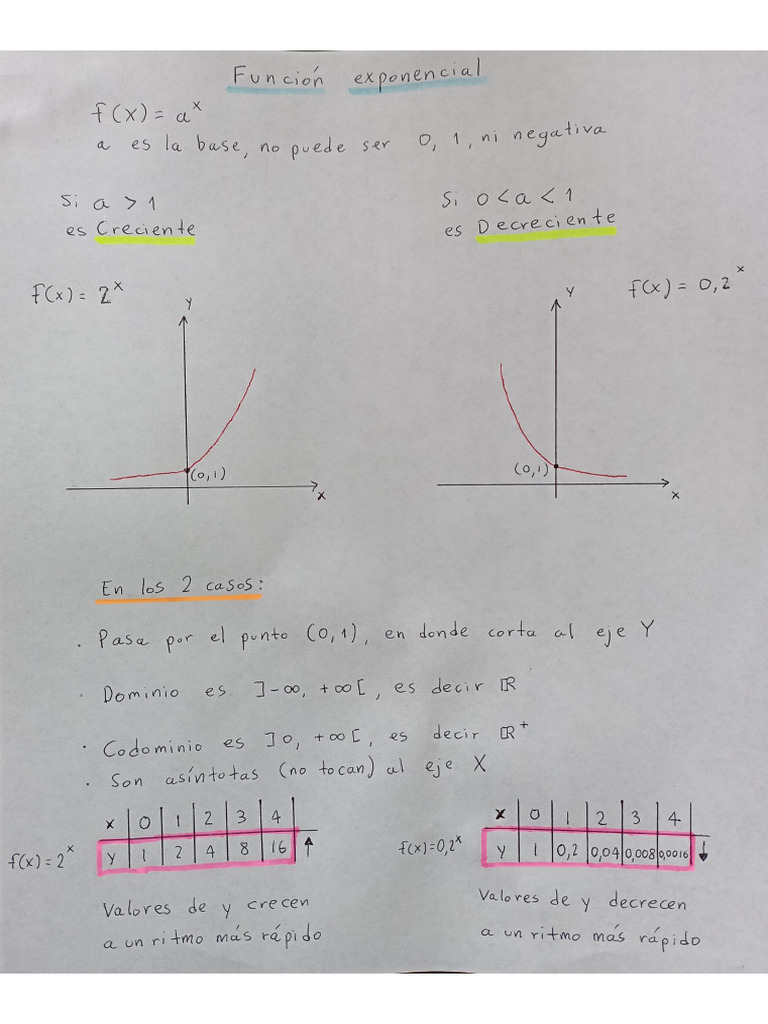 Función exponencial
f(x) = a^x
a es la base, no puede ser 0, 1, ni negativa
Si a > 1
es Creciente
Si 0 < a < 1
es Decreciente
f(x) = 2^x
Y
(0,1)
X
f(x) = 0,2^x
Y
(0,1)
X
En los 2 casos:
. Pasa por el punto (0,1), en donde corta al eje Y
. Dominio es ]-∞, +∞[, es decir ℝ
. Codominio es ]0, +∞[, es decir ℝ^+
. Son asíntotas (no tocan) al eje X
f(x) = 2^x
x | 0 | 1 | 2 | 3 | 4 |
y | 1 | 2 | 4 | 8 | 16 | ↑
Valores de y crecen
a un ritmo más rápido
f(x) = 0,2^x
x | 0 | 1 | 2 | 3 | 4 |
y | 1 | 0,2 | 0,04 | 0,008 | 0,0016 | ↓
Valores de y decrecen
a un ritmo más rápido